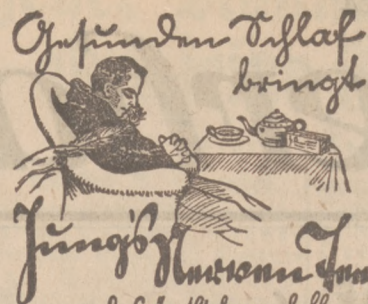 Gesunden Schlaf
bringt
Jung's Nerven Tee